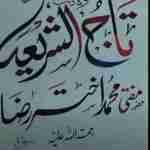 تاج الشریعہ
مفتی محمد اختر رضا
رحمۃ اللہ علیہ